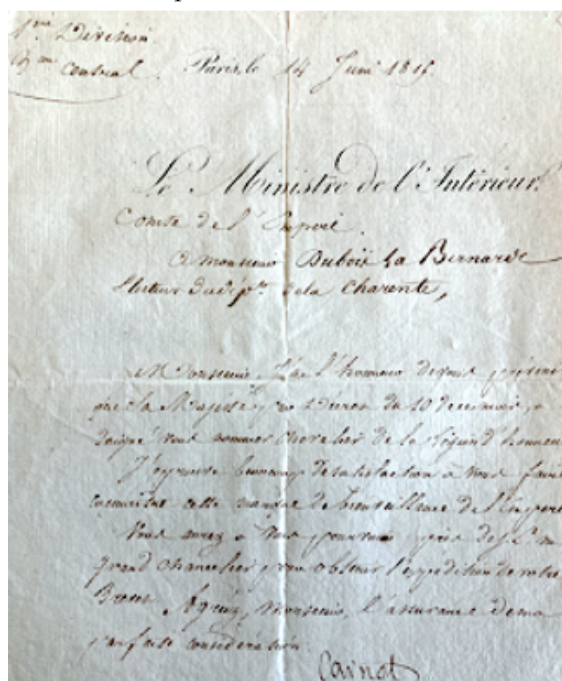 1re Division
Paris, le 14 Juin 1815.
Le Ministre de l'Intérieur,
Comte de l'Empire.
a monsieur Dubois la Bernarde
de la Charente,
Monsieur, J'ai l'honneur de vous
que sa Majesté, par Décret du 10
daigné vous nommer chevalier de la Légion d'honneur
J'éprouve beaucoup de satisfaction à vous faire
connaitre cette marque de bienveillance de l'Emper
Vous aurez a vous pourvoir près de
grand chancelier pour obtenir l'expédition de votre
Brevet. Agréez, monsieur, l'assurance de ma
parfaite considération.
Carnot